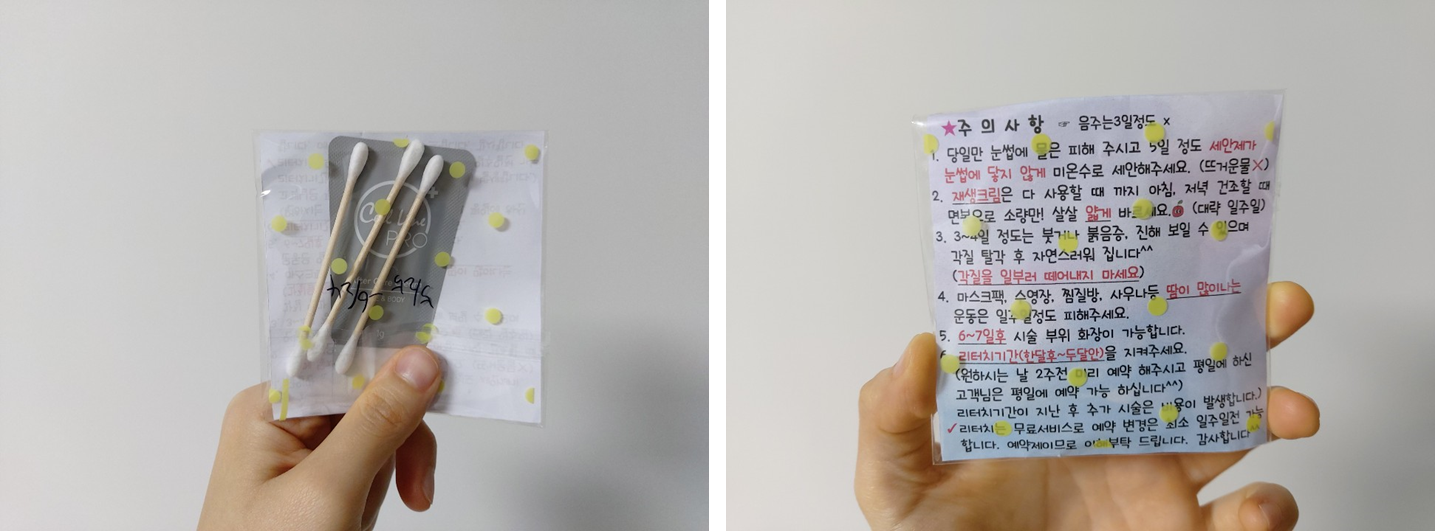 PRO
& BODY
★주의사항 ☞ 음주는3일정도 ×
1. 당일만 눈썹에 물은 피해 주시고 5일 정도 세안제가
눈썹에 닿지 않게 미온수로 세안해주세요. (뜨거운물X)
2. 재생크림은 다 사용할 때 까지 아침, 저녁 건조할 때
면봉으로 소량만! 살살 얇게 바르세요. (대략 일주일)
3. 3~4일 정도는 붓거나 붉음증, 진해 보일 수 있으며
각질 탈각 후 자연스러워 집니다^^
(각질을 일부러 떼어내지 마세요)
4. 마스크팩, 수영장, 찜질방, 사우나등 땀이 많이나는
운동은 일주일정도 피해주세요.
5. 6~7일후 시술 부위 화장이 가능합니다.
6. 리터치기간(한달후~두달안)을 지켜주세요.
(원하시는 날 2주전 미리 예약 해주시고 평일에 하신
고객님은 평일에 예약 가능 하십니다^^)
리터치기간이 지난 후 추가 시술은 비용이 발생합니다.)
✓리터치는 무료서비스로 예약 변경은 최소 일주일전 가능
합니다. 예약제이므로 이해부탁 드립니다. 감사합니다^^